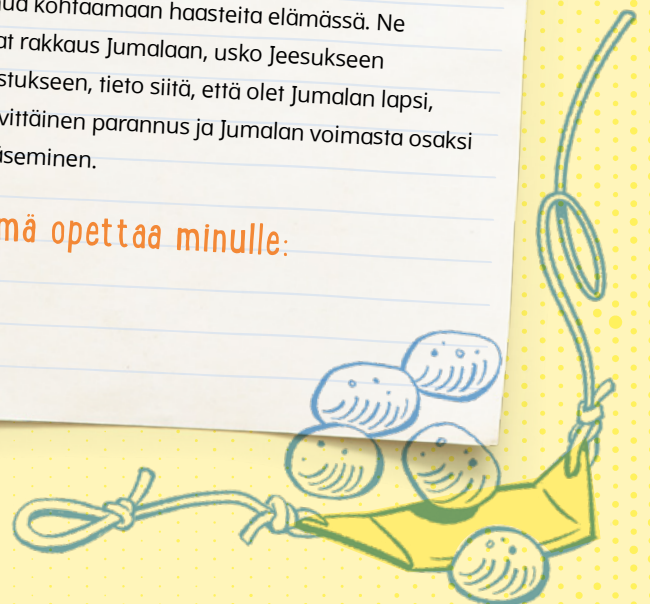 kohtaamaan haasteita elämässä. Ne
rakkaus Jumalaan, usko Jeesukseen
tieto siitä, että olet Jumalan lapsi,
parannus ja Jumalan voimasta osaksi
opettaa minulle: